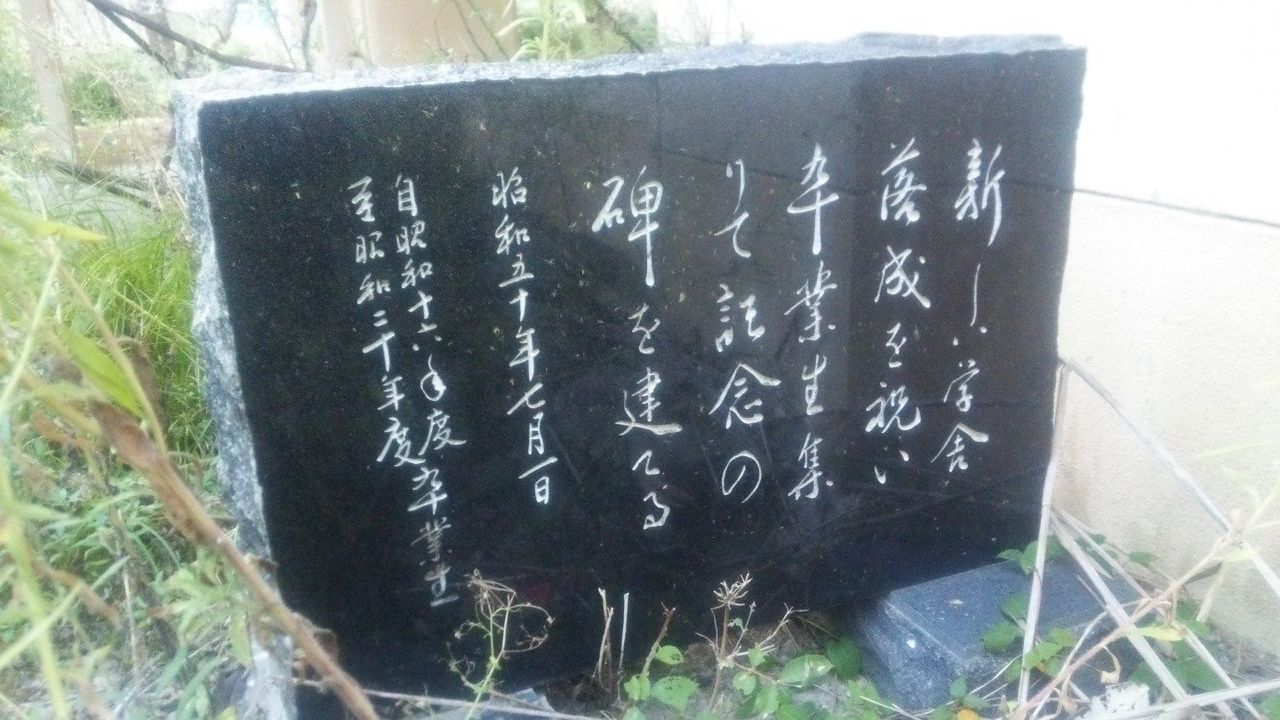 新しい学舎
落成を祝い
卆業生集
りて記念の
碑を建てる
昭和五十年七月一日
自昭和十六年度卆業生
至昭和二十年度